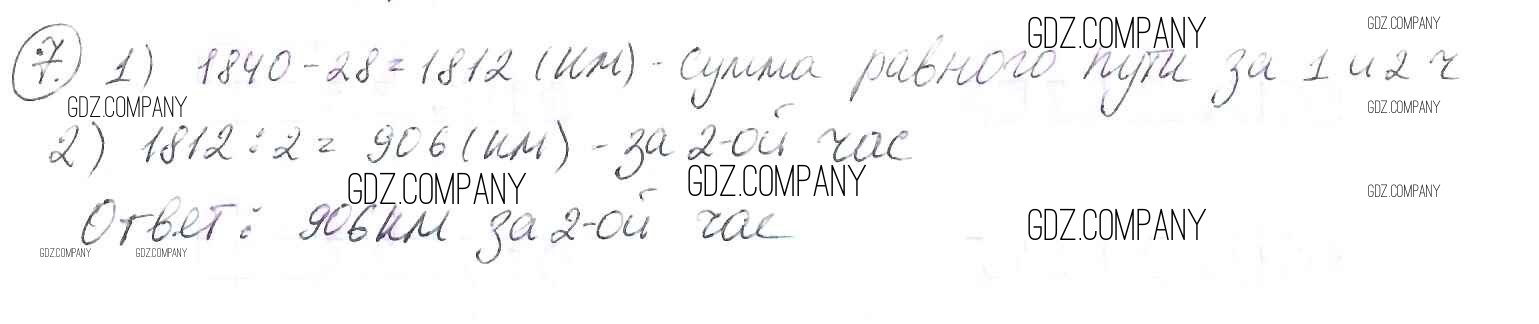 7. 1) 1840-28=1812 (км) - сумма равного пути за 1 и 2 ч
2) 1812:2= 906 (км) - за 2-ой час
Ответ: 906 км за 2-ой час
GDZ.COMPANY
GDZ.COMPANY
GDZ.COMPANY
GDZ.COMPANY
GDZ.COMPANY
GDZ.COMPANY
GDZ.COMPANY
GDZ.COMPANY
GDZ.COMPANY
GDZ.COMPANY